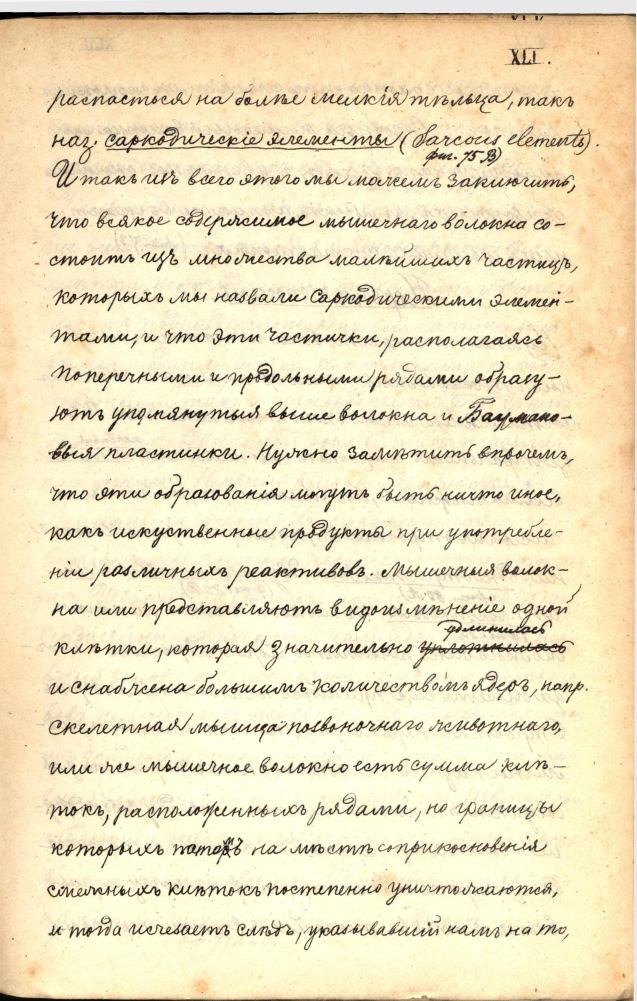 XLI.
распасться на болѣе мелкія тѣльца, такъ
наз. саркодическіе элементы (Sarcous elements).
фиг. 75 B)
Итакъ изъ всего этого мы можемъ заключить,
что всякое содержимое мышечнаго волокна со-
стоитъ изъ множества малѣйшихъ частицъ,
которыхъ мы назвали саркодическими элемен-
тами, и что эти частички, располагаясь
поперечными и продольными рядами образу-
ютъ упомянутыя выше волокна и Баумано-
выя пластинки. Нужно замѣтить впрочемъ,
что эти образованія могутъ быть ничто иное,
какъ искуственные продукты при употребле-
ніи различныхъ реактивовъ. Мышечныя волок-
на или представляютъ видоизмѣненіе одной
удлинилась
клѣтки, которая значительно уплотнилась
и снабжена большимъ количествомъ ядеръ, напр.
скелетная мышца позвоночнаго животнаго,
или же мышечное волокно есть сумма клѣ-
токъ, расположенныхъ рядами, но границы
которыхъ на мѣстѣ соприкосновенія
смежныхъ клѣтокъ постепенно уничтожаются,
и тогда исчезаетъ слѣдъ, указывавшій намъ на то,